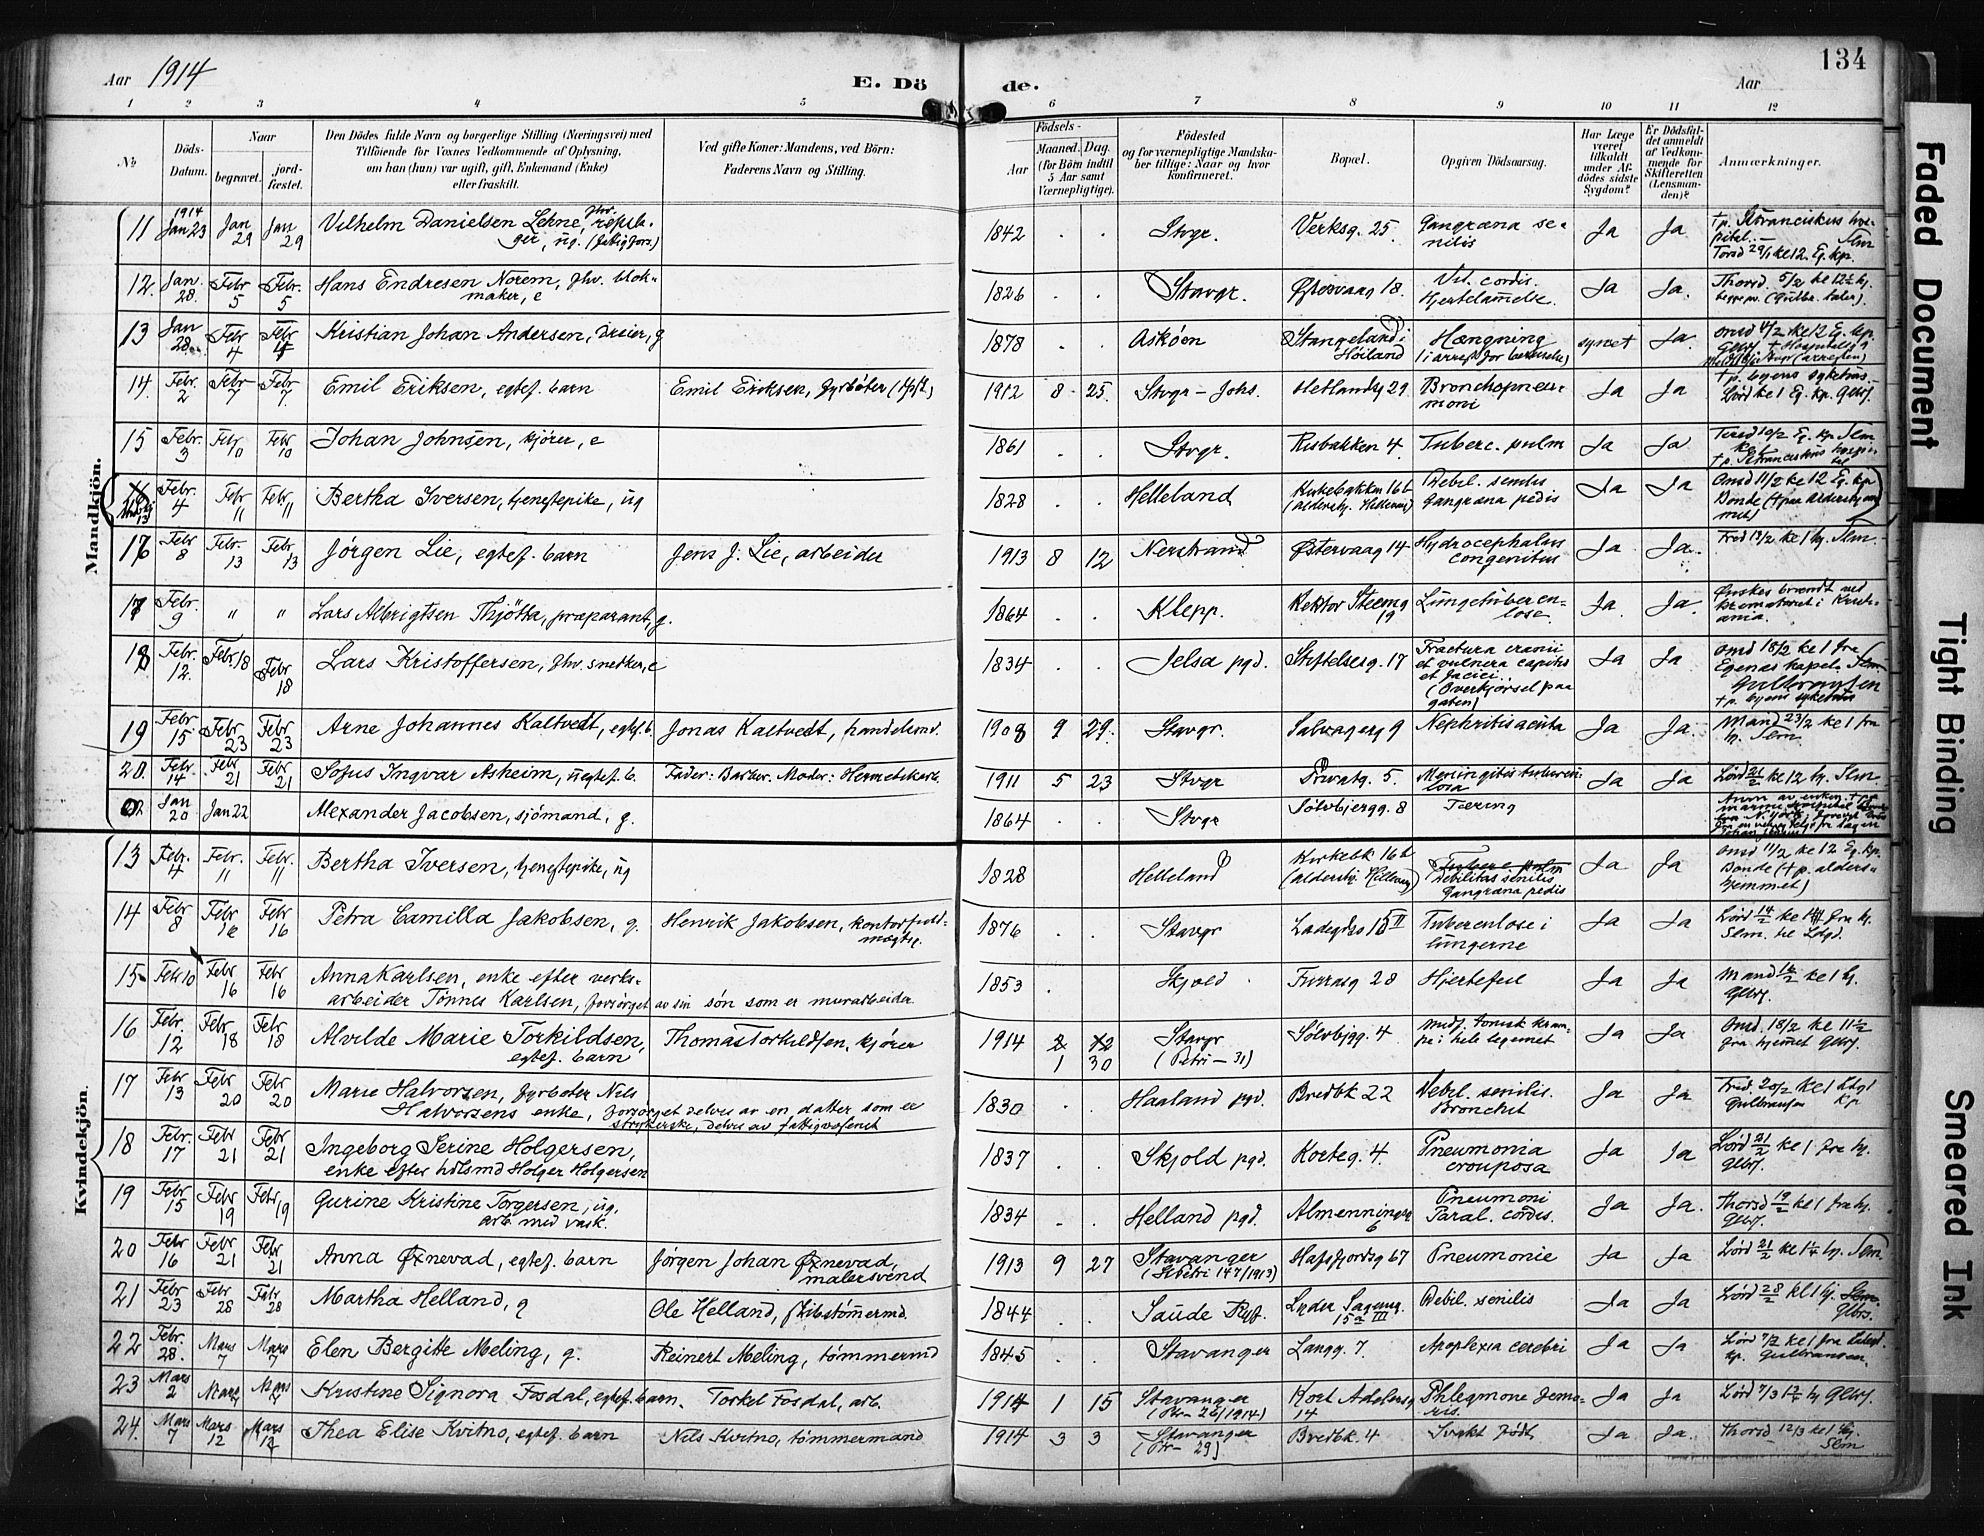 Aar 1914
E. Dö de.
134
Aar
1 2 3 4 5 6 7 8 9 10 11 12
No
Döds-Datum.
Naar
begravet.
jord-fæstet.
Den Dödes fulde Navn og borgerlige Stilling (Næringsvei) med
Tilföiende for Voxnes Vedkommende af Oplysning,
om han (hun) var ugift, gift, Enkemand (Enke)
eller fraskilt.
Ved gifte Koner: Mandens, ved Börn:
Faderens Navn og Stilling.
Födsels-
Aar
Maaned. Dag.
(for Börn indtil
5 Aar samt
Værnepligtige).
Födested
og for værnepligtige Mandska-
ber tillige: Naar og hvor
konfirmeret.
Bopæl.
Opgiven Dödsaarsag.
Har Læge
været
tilkaldt
under Af-
dödes sidste
Sygdom?
Er Dödsfal-
det anmeldt
af Vedkom-
mende for
Skifteretten
(Lensman-
den)?
Anmærkninger.
Mandkjön.
11 1914 Jan 23 Jan 29 Jan 29 Vilhelm Danielsen Lehne, fhv. repsla-
ger, ug. (fattigfors.) 1842 . . Stvgr. Verksg. 25. Gangræna se-
nilis Ja Ja
12. Jan. 28. Febr 5 Febr. 5 Hans Endresen Norem, fhv. blok-
maker, e 1826 . . Stavgr. Østervaag 18. Vit. cordis.
Hjertelammelse. Ja Ja. Thorsd. 5/2
13 Jan 28. Febr 4 Febr 4 Kristian Johan Andersen, dreier, g 1878 . . Askøen Stangeland i
Höiland Hængning
(i arrest for beruselse) synet Ja. Onsd 4/2 ke 12 Eg. kp
14. Febr. 2 Febr 7 Febr. 7. Emil Eriksen, egtef. barn Emil Eriksen, fyrbøter 1912 8 25. Stvgr - Johs. Hetlandsg 29 Bronchopneu-
moni Ja Ja † p. byens sykehus.
Lørd ke 1 Eg. kp. Glbrs.
15 Febr. 3 Febr. 10 Febr 10 Johan Johnsen, kjører, e 1861 Stvgr. Risbakken 4. Tuberc. pulm Ja Ja Tirsd 10/2 Eg. kp. Slm
Febr. 4 Febr 11 Febr. 11 Bertha Iversen, tjenestepike, ug 1828 . . Helleland Kirkebakken 16b Debil. senilis
Gangræna pedis Ja Ja Onsd 11/2 ke 12 Eg. kp
16 Febr 8 Febr. 13 Febr 13 Jørgen Lie, egtef. barn Jens J. Lie, arbeider 1913 8 12 Nerstrand Østervaag 14 Hydrocephalus
congenitus Ja Ja. Fred 13/2 ke 1 hj. Slm.
17 Febr. 9 " " Lars Albrigtsen Thjøtta, præparant, g. 1864 . . Klepp. Rektor Steensg
19 Lungetuberku-
lose. Ja Ja. Ønskes brændt ved
krematoriet i Kristi-
ania.
18 Febr. 12. Febr. 18 Febr 18 Lars Kristoffersen, fhv. snekker, e 1834 . . Jelsa pgd. Stiftelsesg. 17 Fractura cranii
et vulnera capitis
et faciei.
(Overkjørsel paa
gaten) Ja Ja. Onsd 18/2 ke 1 fra
Egenæs kapel.
19 Febr 15 Febr 23 Febr 23 Arne Johannes Kaltvedt, egtef. b. Jonas Kaltvedt, handelsmd. 1908 9 29. Stavgr. Salvagerg 9 Nephritis acuta Ja Ja. Mand 23/2 ke 1 fra
hj. Slm.
20. Febr 14 Febr 21 Febr 21 Sofus Ingvar Asheim, uegtef. b. Fader: Barber. Moder: Hermetikarb. 1911 5 23 Stvgr Privatg. 5. Meningitis tubercu-
losa Ja Ja Lörd 21/2 ke 12 hj. Slm
Jan 20 Jan 22 Alexander Jacobsen, sjömand, g. 1864 Stvgr Sølvbjergg. 8 Tæring
Kvindekjön.
13 Febr. 4 Febr. 11 Febr. 11 Bertha Iversen, tjenestepike, ug 1828 Helleland Kirkebk 16b Tuberc. pulm
Debilitas senilis
Gangræna pedis Ja Ja Onsd 11/2 ke 12 Eg. kp.
Bonde († p. alders-
hjemmet)
14 Febr 8 Febr 16 Febr 16 Petra Camilla Jakobsen, g. Henrik Jakobsen, kontorfuld-
mægtig. 1876 . . Stavgr Ladegds 15 II Tuberculose i
lungerne Ja Ja Lörd 14/2
15 Febr 10 Febr 16 Febr 16 Anna Karlsen, enke efter verks-
arbeider Tönnes Karlsen, forsørget av sin søn som er murarbeider 1853 . . Skjold Furrasg 28 Hjertefeil Ja Ja Mand 16/2 ke 1 hj.
Glbrs.
16 Febr. 12 Febr 18 Febr 18 Alvilde Marie Torkildsen,
egtef. barn Thomas Torkildsen, kjører 1914 2 12
1 30 Stavgr
(Petri - 31) Sölvbjgg. 4 Medf. tonisk kram-
pe i hele legemet Ja Ja Onsd. 18/2 ke 11 1/2
fra hjemmet Glbrs.
17 Febr 13 Febr 20 Febr 20 Marie Halvorsen, fyrbøter Nils
Halvorsens enke, forsørget delvis av en datter som er
strykerske, delvis av fattigvæsenet 1830 . . Haaland pgd. Bredbk 22 Debil. senilis.
Bronchit Ja Ja Fred 20/2 ke 1 Ldgd
Gulbransen Kp.
18 Febr. 17 Febr 21 Febr 21 Ingeborg Serine Holgersen,
enke efter holsmd Holger Holgersen 1837 . . Skjold pgd. Korteg. 4. Pneumonia
crouposa Ja Ja Lörd 21/2 ke 1 fra hj.
Glbrs.
19 Febr 15 Febr 19 Febr 19 Gurine Kristine Torgersen, ug.
arb. med vask. 1834 . . Helland pgd. Almenningsg
6 Pneumoni
Paral. cordis. Ja Ja. Thorsd 19/2 ke 1 fra hj.
Glbrs.
20 Febr 16 Febr 21 Febr. 21 Anna Øxnevad, egtef. barn Jörgen Johan Øxnevad,
malersvend 1913 9 27 Stavanger
(St Petri 147/1913) Hafsfjordsg 67 Pneumonie Ja Ja Lörd 21/2 ke 1 1/4 hj. Slm
21 Febr 23 Febr 28 Febr. 28 Martha Helland, g Ole Helland, skibstömmermd. 1844 . . Saude Ryf. Leder Sagensg.
15 III Debil. senilis Ja Ja Lörd 28/2 kl 1 hj. Slm.
Glbrs.
22 Febr. 28. Mars 7 Mars 7 Elen Bergitte Meling, g. Reinert Meling, tömmermd 1845 . . Stavanger Langg. 7. Apoplexia cerebri Ja Ja
23 Mars 2 Mars 7 Mars 7 Kristine Signora Fosdal, egtef. barn. Torkel Fosdal, arb. 1914 1 15 Stavanger
(Ptr - 26/1914) Kort Adelersg
14 Phlegmone femo-
ris. Ja Ja Lörd 7/3 12 1/2 hj Glbrs.
24. Mars 7 Mars 12 Mars 12 Thea Elise Kvitno, egtef. barn Nils Kvitno, tömmermand 1914 3 3 Stavanger
(Ptr - 29) Bredbk. 4 Svakt födt Ja Ja. Thorsd 12/3 ke 1 hj.
Slm
Faded Document
Tight Binding
Smeared Ink